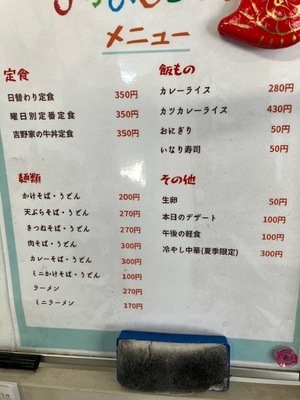 メニュー
定食
日替わり定食 350円
曜日別定番定食 350円
吉野家の牛丼定食 350円
飯もの
カレーライス 280円
カツカレーライス 430円
おにぎり 50円
いなり寿司 50円
麺類
かけそば・うどん 200円
天ぷらそば・うどん 270円
きつねそば・うどん 270円
肉そば・うどん 300円
カレーそば・うどん 300円
ミニかけそば・うどん 100円
ラーメン 270円
ミニラーメン 170円
その他
生卵 50円
本日のデザート 100円
午後の軽食 100円
冷やし中華(夏季限定) 300円